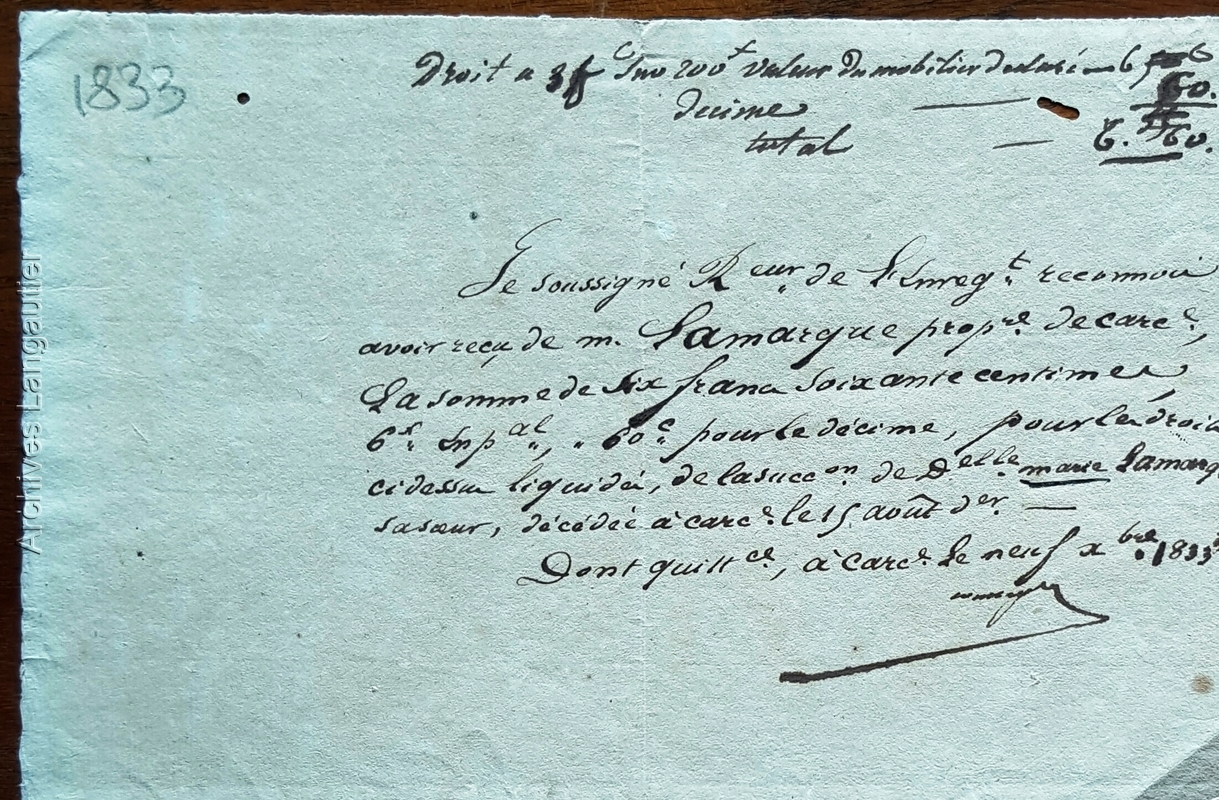 1833
Droit a 3f c Sur 200f valeur du mobilier declaré — 6
60.
decime —
total — 6. 60.
Je soussigné Reur de l'Enregt reconnois
avoir reçu de m. Lamarque propre de carce,
La somme de six francs soixante centimes
6f En pal, 60c pour le décime, pour les droits
ci dessus liquidés, de la succon de Delle marie Lamarq
sa sœur, décédée à carce le 15 août der. —
Dont quittce, à carce Le neuf xbre 1833
Archives Langautier